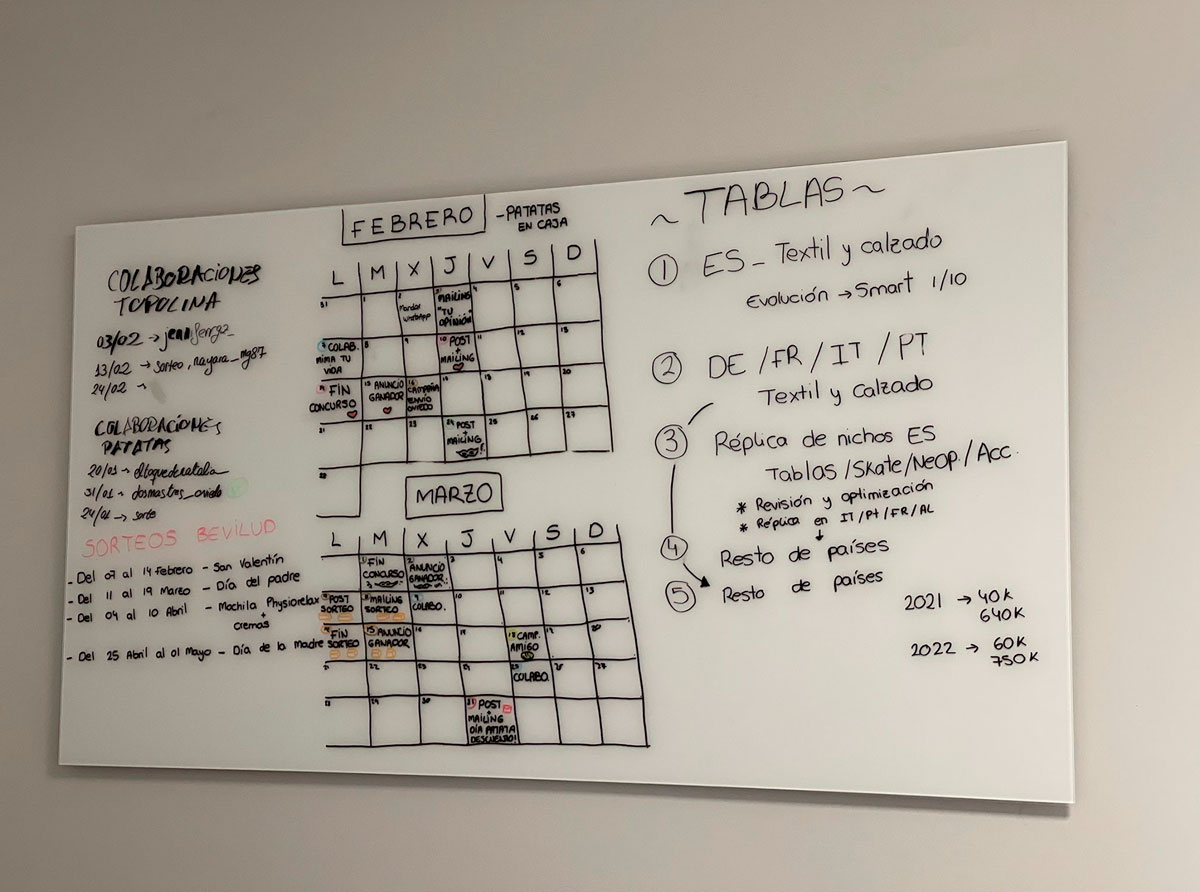 COLABORACIONES
TOPOLINA
03/02 →
13/02 → sorteo, nayara_mg87
24/02 →
COLABORACIONES
PATATAS
20/01 → eltoquedenatalia
31/01 → dosmastres_oviedo
24/01 → sorte
SORTEOS BEVILUD
- Del 07 al 14 Febrero - San Valentín
- Del 11 al 19 Marzo - Día del padre
- Del 04 al 10 Abril - Mochila Physiorelax
+
cremas
- Del 25 Abril al 01 Mayo - Día de la Madre
FEBRERO
- PATATAS
EN CAJA
L M X J V S D
31 1 2 3 4 5 6
Mandar
whatsApp
MAILING
"TU
OPINIÓN"
7 8 9 10 11 12 13
COLAB.
MIMA TU
VIDA
POST
+
MAILING
14 15 16 17 18 19 20
FIN
CONCURSO
ANUNCIO
GANADOR
CAMPAÑA
ENVÍO
OVIEDO
21 22 23 24 25 26 27
POST
+
MAILING
28
MARZO
L M X J V S D
1 2 3 4 5 6
FIN
CONCURSO
ANUNCIO
GANADOR
7 8 9 10 11 12 13
POST
SORTEO
MAILING
SORTEO
COLABO.
14 15 16 17 18 19 20
FIN
SORTEO
ANUNCIO
GANADOR
CAMP.
AMIGO
21 22 23 24 25 26 27
COLABO.
28 29 30 31
POST
+
MAILING
DÍA PATATA
DESCUENTO!
~ TABLAS ~
1 ES - Textil y calzado
Evolución → Smart 1/10
2 DE / FR / IT / PT
Textil y calzado
3 Réplica de nichos ES
Tablas / Skate / Neop. / Acc.
* Revisión y optimización
* Réplica en IT/PT/FR/AL
↓
4 Resto de países
5 Resto de países
2021 → 40K
640K
2022 → 60K
750K